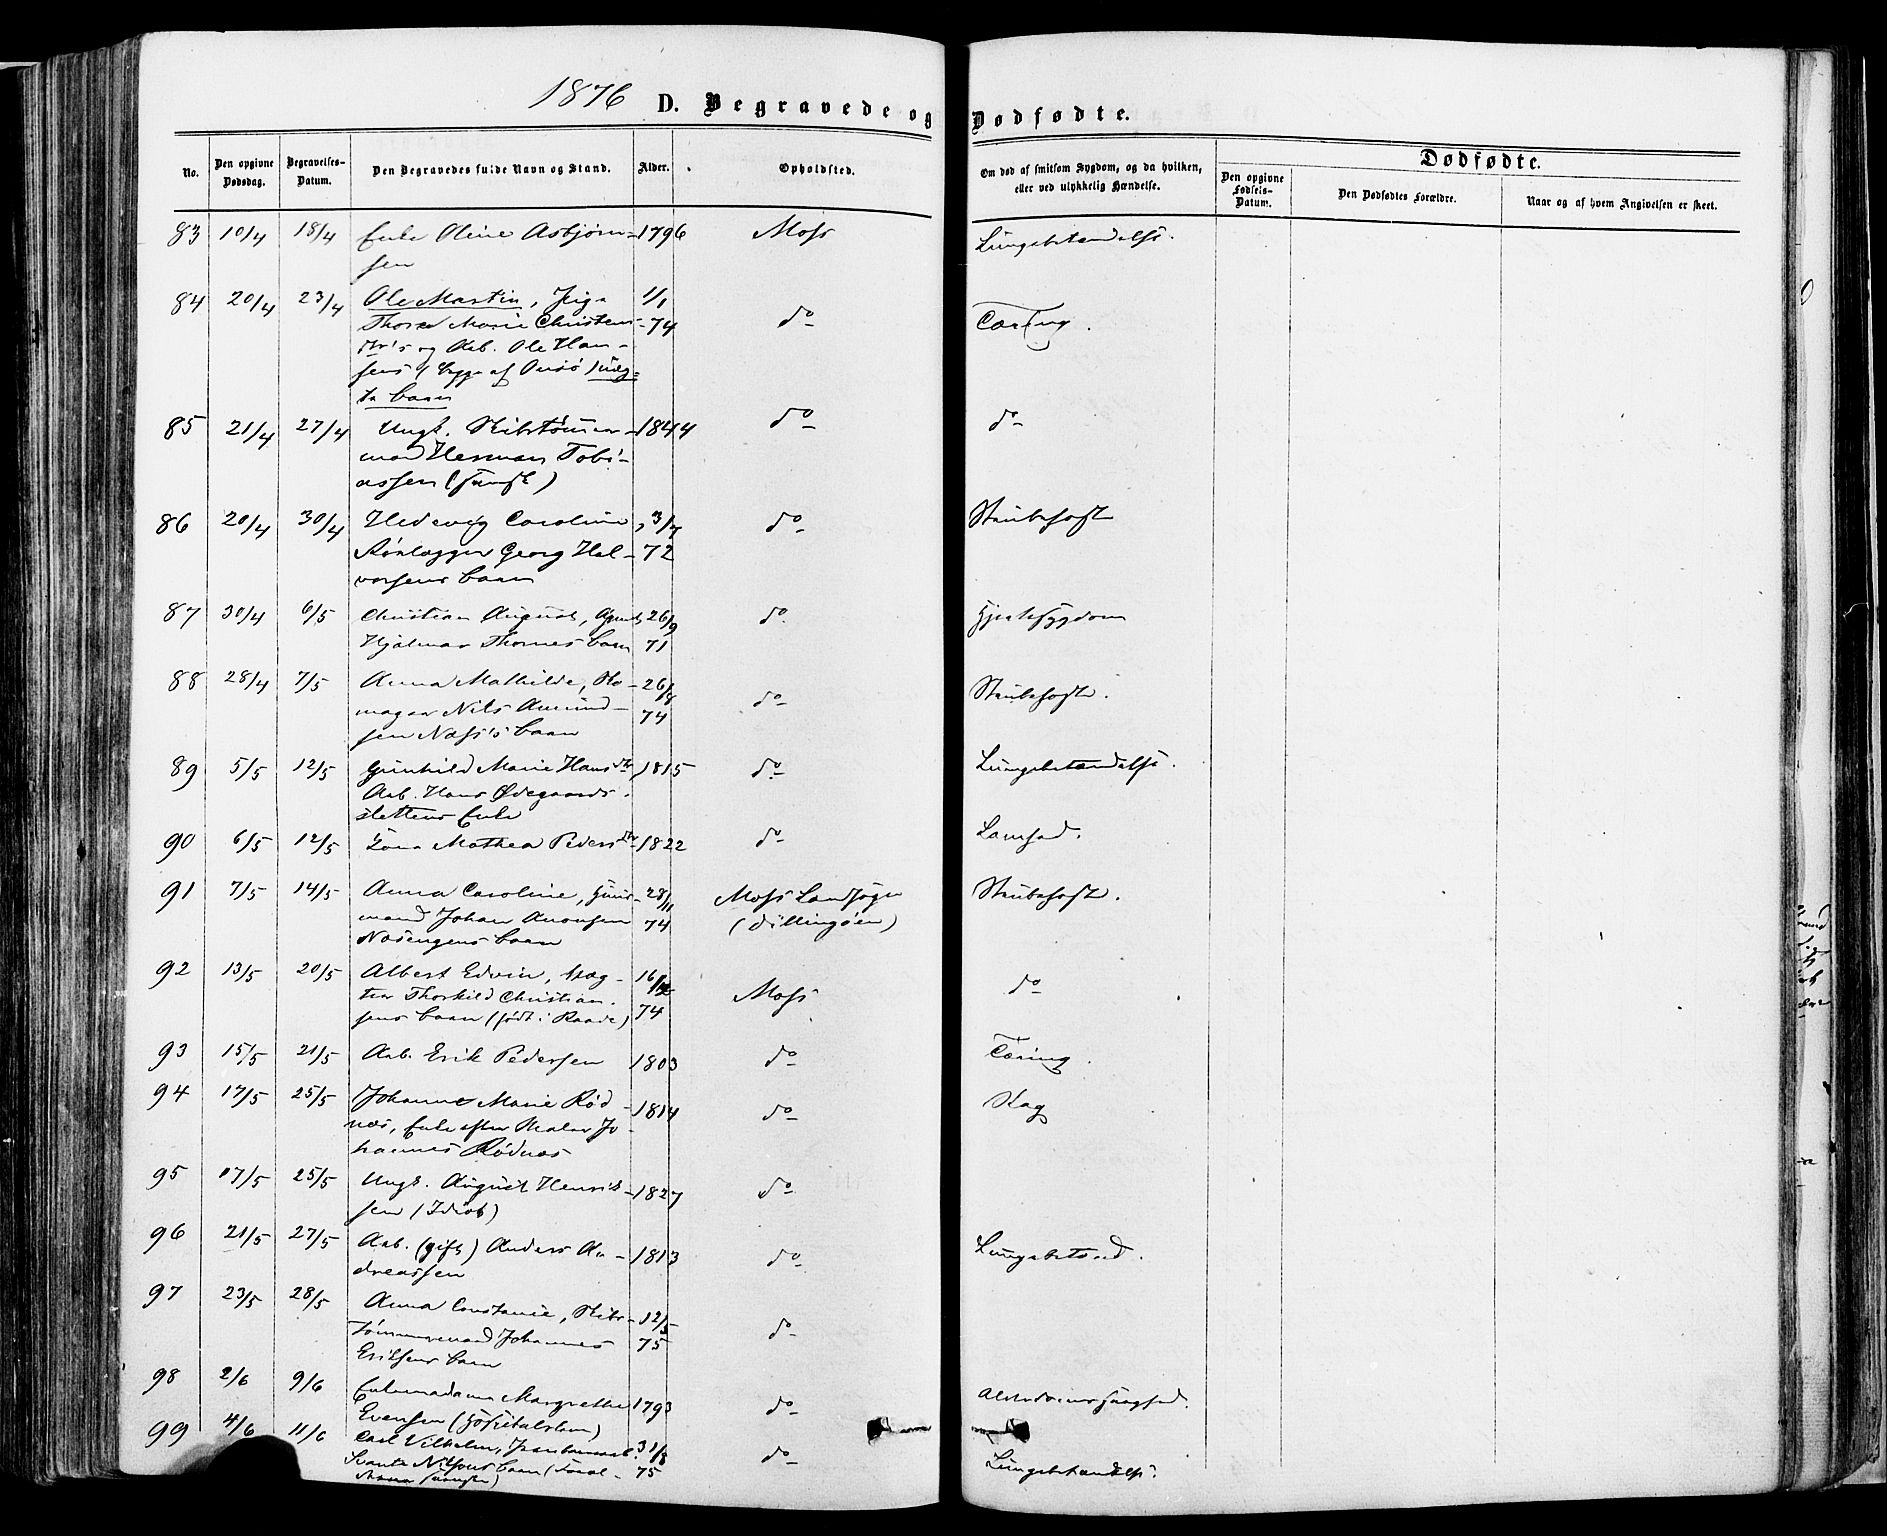 1876 D. Begravede og Dødfødte.
No.
Den opgivne Dødsdag.
Begravelses-Datum.
Den Begravedes fulde Navn og Stand.
Alder.
Opholdsted.
Om død af smitsom Sygdom, og da hvilken, eller ved ulykkelig Hændelse.
Dødfødte.
Den opgivne Fødsels-Datum.
Den Dødfødtes Forældre.
Naar og af hvem Angivelsen er skeet.
83 10/4 18/4 Enke Oline Asbjørn- 1796 Moss Lungebetændelse.
sen
84 20/4 23/4 Ole Martin, Pige 1/1
Thorine Marie Christens- 74 do Tæring.
dtr's og Arb. Ole Han-
sens (begge af Onsø) uæg-
te barn
85 21/4 27/4 Ungk. Skibstømmer- 1844 do do
mand Herman Tobi-
assen (svensk)
86 20/4 30/4 Hedevig Caroline, 3/7 do Strubehoste
Rørlægger Georg Hal- 72
vorsens barn
87 30/4 6/5 Christian August, Agent 26/9 do Hjertesygdom
Hjalmar Thornes barn 71
88 28/4 7/5 Anna Mathilde, Sko- 26/8 do Strubehoste.
mager Nils Amund- 74
sen Næss's barn
89 5/5 12/5 Gunhild Marie Hansdtr, 1815 do Lungebetændelse.
Arb. Hans Ødegaards-
slettens Enke
90 6/5 12/5 Mathea Pedersdtr 1822 do Lamhed.
91 7/5 14/5 Anna Caroline, Huus- 28/11 Moss Landsogn Strubehoste.
mand Johan Aronsen 74 (Dillingøen)
Næsengens barn
92 13/5 20/5 Albert Edvin, Slag- 16/12 Moss do
ter Thorkild Christian- 74
sens barn (født i Raade)
93 15/5 21/5 Arb. Erik Pedersen 1803 do Tæring.
94 17/5 25/5 Johanne Marie Rød- 1814 do Slag
næs, Enke efter Maler Jo-
hannes Rødnæs
95 17/5 25/5 Ungk. August Henrik- 1827 do
sen (Idiot)
96 21/5 27/5 Arb. (gift) Anders An- 1813 do Lungebetænd.
dreassen
97 23/5 28/5 Anna Constance, Skibs- 12/5 do
tømmermand Johannes 75
Eriksens barn
98 2/6 9/6 Enkemadame Margrethe 1793 do Alderdomssvaghed.
Evensen (Hospitalslem)
99 4/6 11/6 Carl Vilhelm, 31/8 do Lungebetændelse.
Nilsons barn (Foræl- 75
drene svenske)